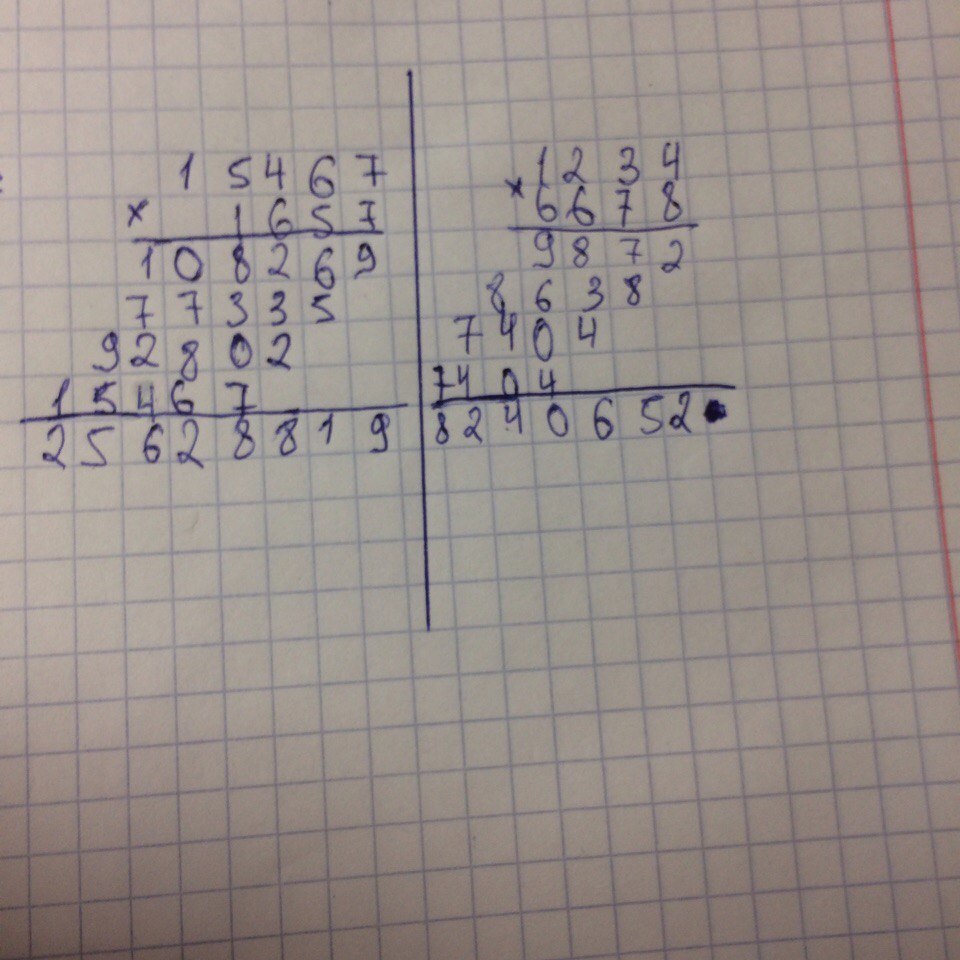 1 5 4 6 7
× 1 6 5 7
1 0 8 2 6 9
7 7 3 3 5
9 2 8 0 2
1 5 4 6 7
2 5 6 2 8 8 1 9
1 2 3 4
× 6 6 7 8
9 8 7 2
8 6 3 8
7 4 0 4
7 4 0 4
8 2 4 0 6 5 2